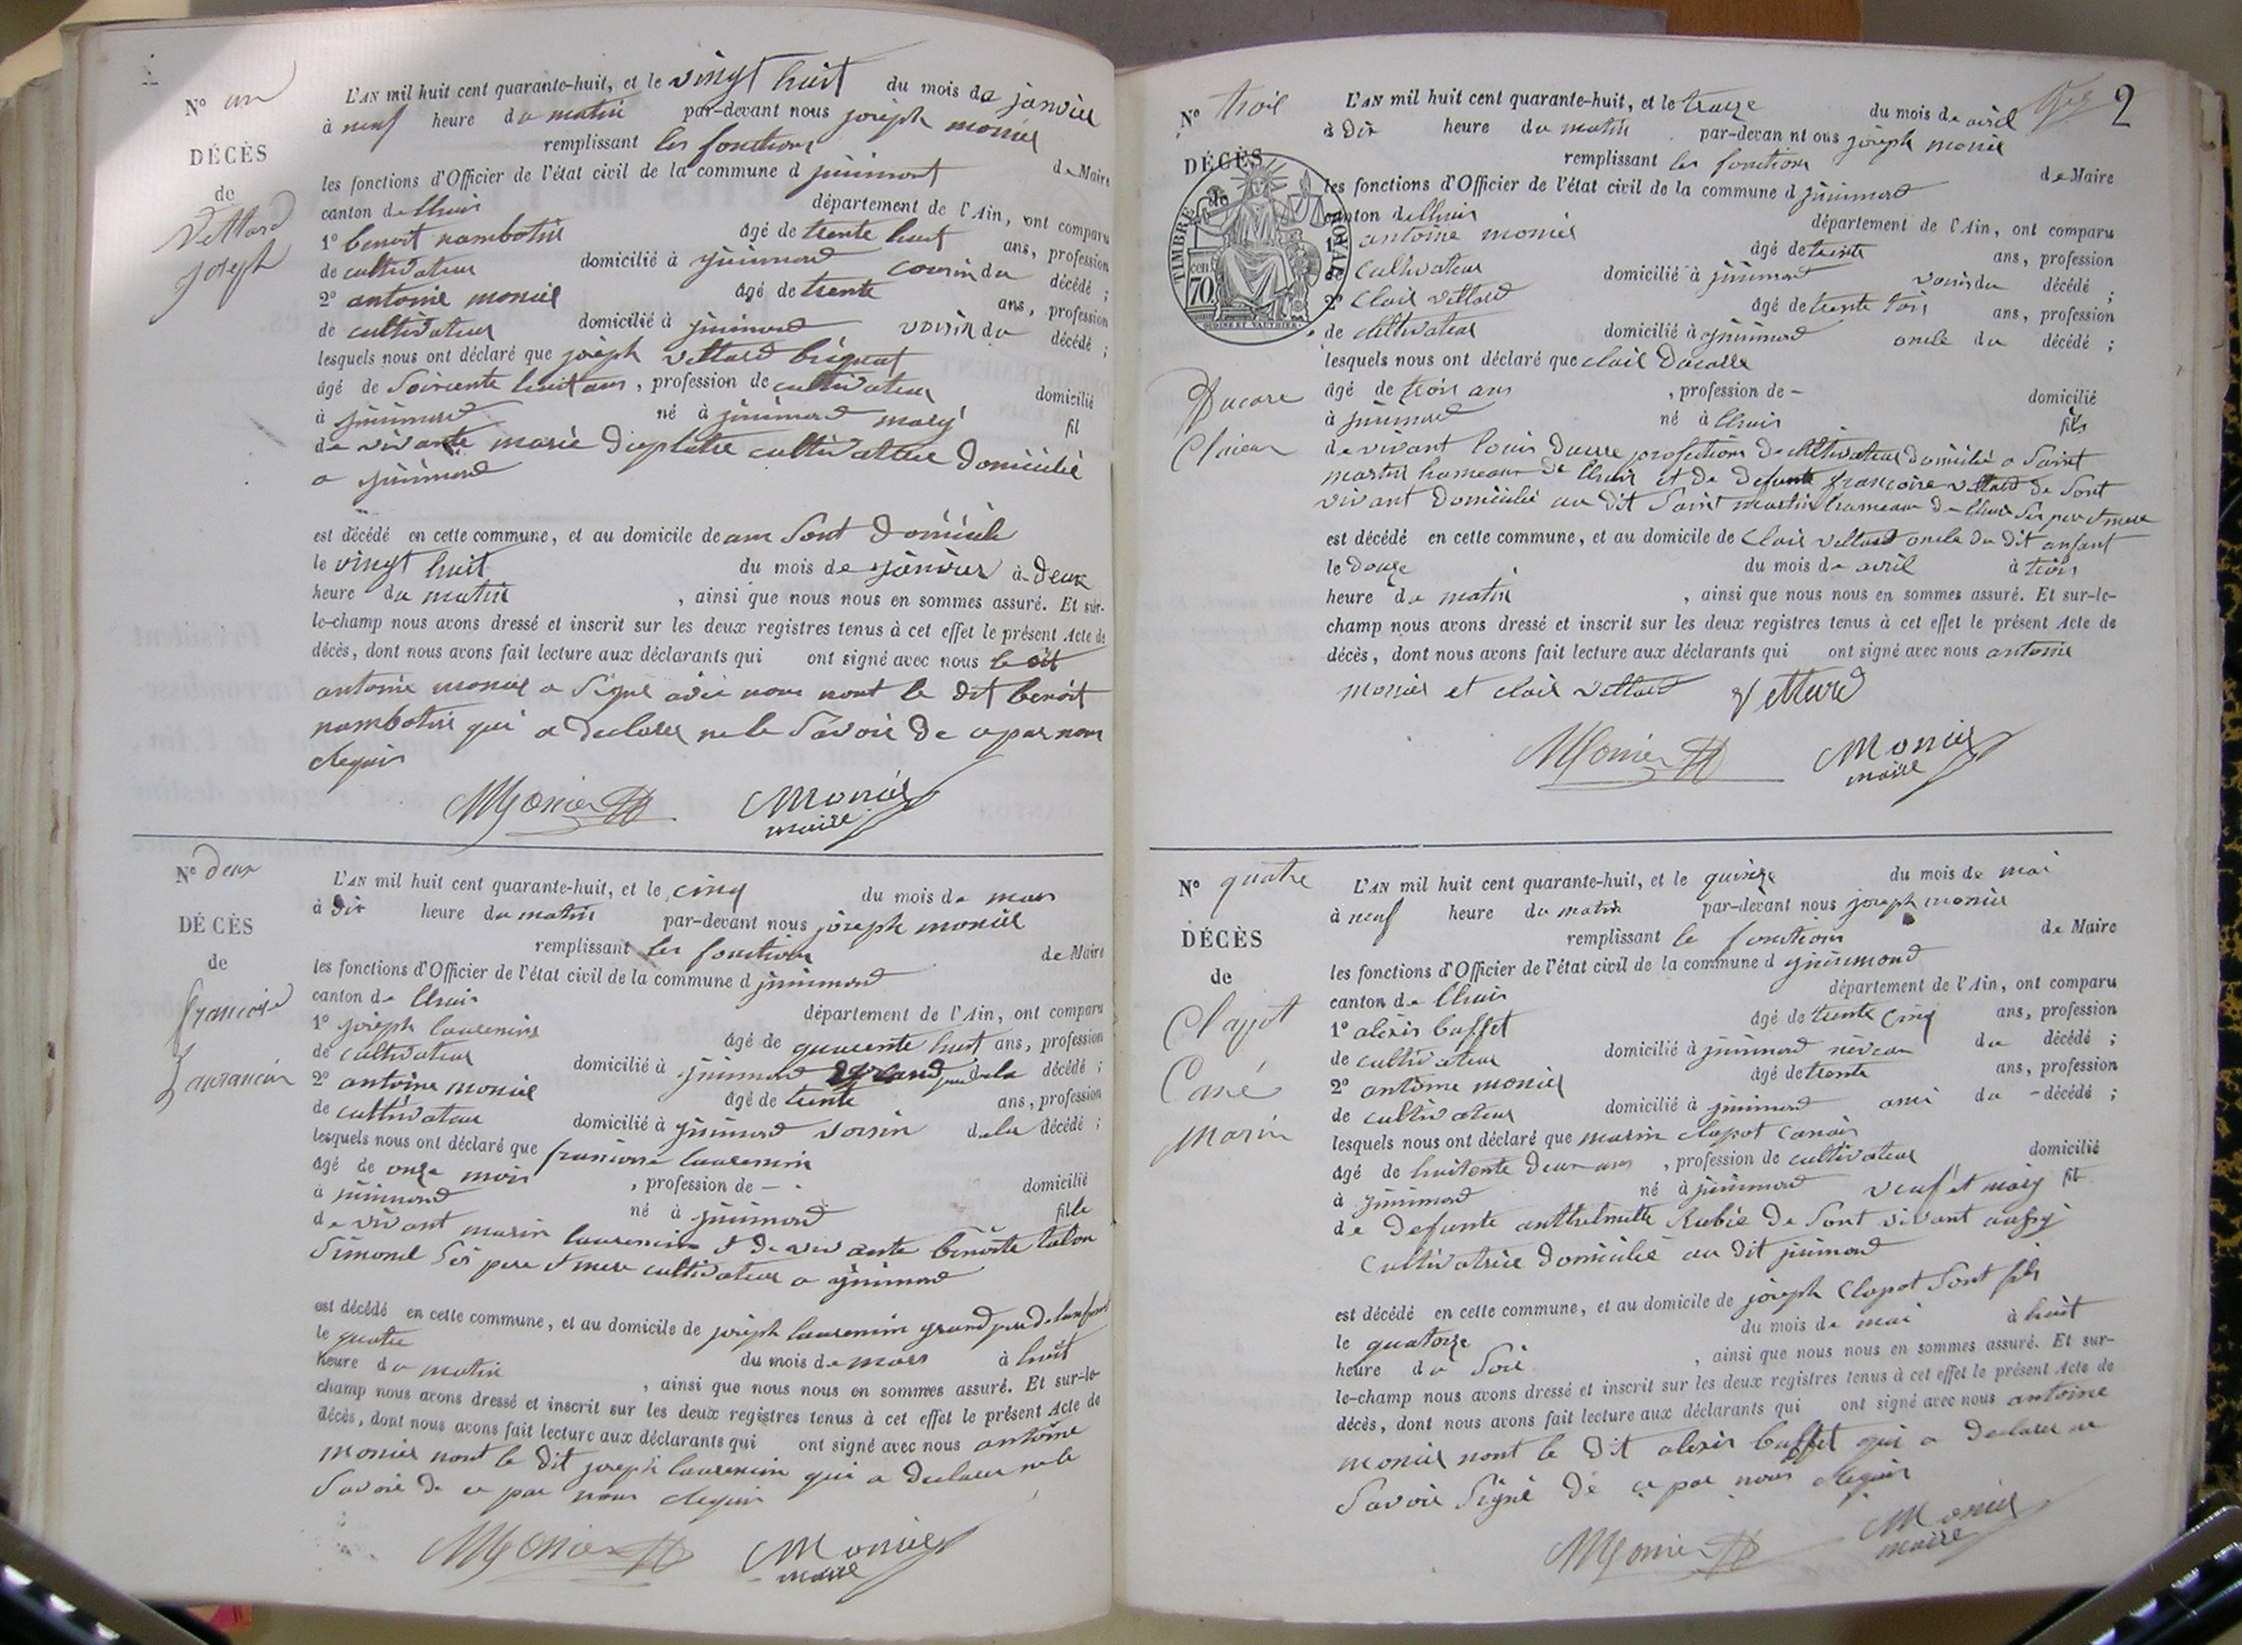 N° un
DÉCÈS
de
Vettard
joseph
L'AN mil huit cent quarante-huit, et le vingt huit du mois de janvier
à neuf heure du matin par-devant nous joseph monier
remplissant les fonctions de Maire
les fonctions d'Officier de l'état civil de la commune d
canton de lhuis département de l'Ain, ont comparu
1° benoit nambotin âgé de trente huit ans, profession
de cultivateur domicilié à cousin du décédé ;
2° antoine monier âgé de trente ans, profession
de cultivateur domicilié à voisin du décédé ;
lesquels nous ont déclaré que joseph vettard
âgé de Soixente huit ans, profession de cultivateur domicilié
à né à fil
de vivante marie cultivateur domicilié
a
est décédé en cette commune, et au domicile de Sont domicile
le vingt huit du mois de janvier à deux
heure du matin , ainsi que nous nous en sommes assuré. Et sur-
le-champ nous avons dressé et inscrit sur les deux registres tenus à cet effet le présent Acte de
décès, dont nous avons fait lecture aux déclarants qui ont signé avec nous le dit
antoine monier a Signé avec nous nont le dit benoit
nambotin qui a declarer ne le Savoir de par nous
Requis
Monier Monier
maire
N° deux
DÉCÈS
de
francoise
L'AN mil huit cent quarante-huit, et le cinq du mois de mars
à dix heure du matin par-devant nous joseph monier
remplissant les fonctions de Maire
les fonctions d'Officier de l'état civil de la commune d
canton de lhuis département de l'Ain, ont comparu
1° joseph laurencin âgé de quarente huit ans, profession
de cultivateur domicilié à grand pere de la décédé ;
2° antoine monier âgé de trente ans, profession
de cultivateur domicilié à voisin de la décédé ;
lesquels nous ont déclaré que francoise laurencin
âgé de onze mois , profession de — domicilié
à né à fille
de vivant marin laurencin et de vivante benoite
Simond Ses pere et mere cultivateur a
est décédé en cette commune, et au domicile de joseph laurencin grand pere de
le quatre du mois de mars à huit
heure du matin , ainsi que nous nous en sommes assuré. Et sur-le-
champ nous avons dressé et inscrit sur les deux registres tenus à cet effet le présent Acte de
décès, dont nous avons fait lecture aux déclarants qui ont signé avec nous antoine
monier nont le dit joseph laurencin qui a declarer ne le
Savoir de ce par nous Requis
Monier Monier
maire
2
N° trois
DÉCÈS
de
TIMBRE ROYAL
70 cent
Ducare
L'AN mil huit cent quarante-huit, et le treize du mois de avril
à dix heure du matin par-devan nt ous joseph monier
remplissant les fonctions de Maire
les fonctions d'Officier de l'état civil de la commune d
canton de lhuis département de l'Ain, ont comparu
1° antoine monier âgé de trente ans, profession
de cultivateur domicilié à voisin du décédé ;
2° Clair vettard âgé de trente trois ans, profession
de cultivateur domicilié à oncle du décédé ;
lesquels nous ont déclaré que clair
âgé de trois ans , profession de - domicilié
à né à lhuis fils
de vivant louis profession de cultivateur domicilié a Saint
martin hameau de lhuis et de defunte francoise vettard de Sont
vivant domicilié au dit Saint martin hameau de lhuis Ses pere et mere
est décédé en cette commune, et au domicile de Clair vettard oncle du dit anfant
le douze du mois de avril à trois
heure du matin , ainsi que nous nous en sommes assuré. Et sur-le-
champ nous avons dressé et inscrit sur les deux registres tenus à cet effet le présent Acte de
décès, dont nous avons fait lecture aux déclarants qui ont signé avec nous antoine
monier et clair vettard Vettard
Monier Monier
maire
N° quatre
DÉCÈS
de
Clapot
Marin
L'AN mil huit cent quarante-huit, et le quinze du mois de mai
à neuf heure du matin par-devant nous joseph monier
remplissant le fonctions de Maire
les fonctions d'Officier de l'état civil de la commune d
canton de lhuis département de l'Ain, ont comparu
1° alexis buffet âgé de trente cinq ans, profession
de cultivateur domicilié à neveau du décédé ;
2° antoine monier âgé de trente ans, profession
de cultivateur domicilié à ami du - décédé ;
lesquels nous ont déclaré que marin clapot
âgé de huitente deux ans , profession de cultivateur domicilié
à né à veuf et mary fil
de defunte anthelmette Rubie de Sont vivant
Cultivatrice domicilié au dit
est décédé en cette commune, et au domicile de joseph Clapot Sont fils
le quatorze du mois de mai à huit
heure du Soir , ainsi que nous nous en sommes assuré. Et sur-
le-champ nous avons dressé et inscrit sur les deux registres tenus à cet effet le présent Acte de
décès, dont nous avons fait lecture aux déclarants qui ont signé avec nous antoine
monier nont le dit alexis buffet qui a declarer ne
Savoir Signé de ce par nous Requis
Monier Monier
maire